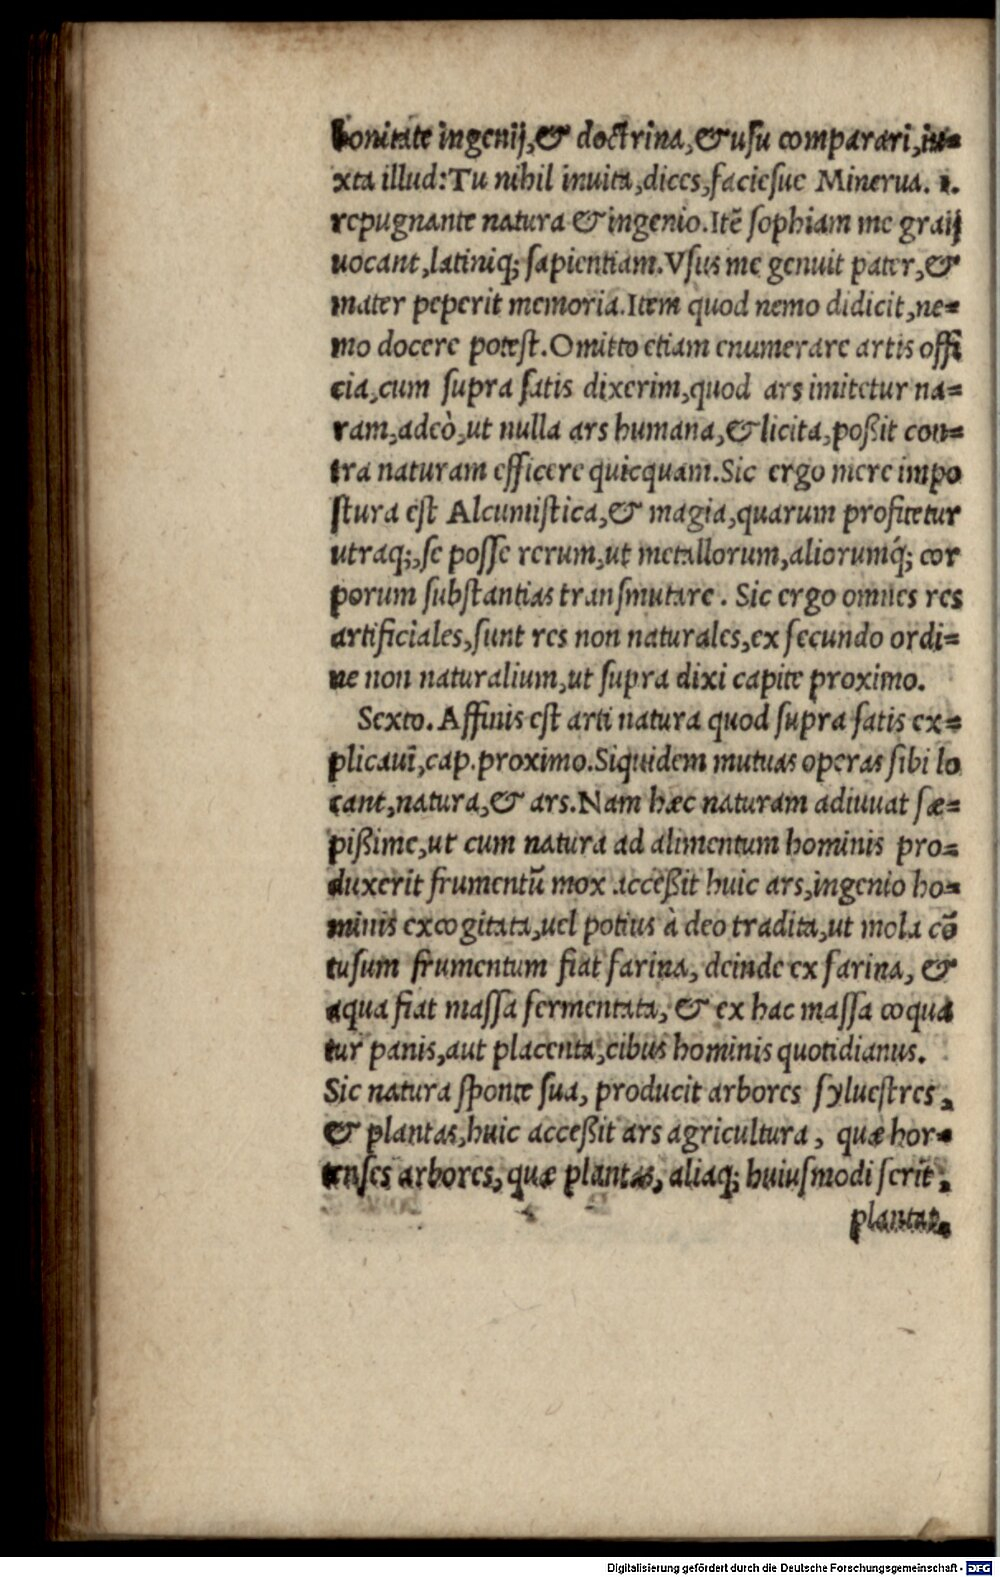 bonitate ingenij, & doctrina, & usu comparari, iu-
xta illud: Tu nihil inuita, dices, faciesue Minerua. i.
repugnante natura & ingenio. Itẽ sophiam me graij
uocant, latiniq; sapientiam. Vsus me genuit pater, &
mater peperit memoria. Item quod nemo didicit, ne-
mo docere potest. Omitto etiam enumerare artis offi
cia, cum supra satis dixerim, quod ars imitetur na-
ram, adeò, ut nulla ars humana, & licita, poßit con-
tra naturam efficere quicquam. Sic ergo mere impo
stura est Alcumistica, & magia, quarum profitetur
utraq;, se posse rerum, ut metallorum, aliorumq́; cor
porum substantias transmutare. Sic ergo omnes res
artificiales, sunt res non naturales, ex secundo ordi-
ne non naturalium, ut supra dixi capite proximo.
Sexto. Affinis est arti natura quod supra satis ex-
plicaui, cap. proximo. Siquidem mutuas operas sibi lo
cant, natura, & ars. Nam hæc naturam adiuuat sæ-
pißime, ut cum natura ad alimentum hominis pro-
duxerit frumentũ mox acceßit huic ars, ingenio ho-
minis excogitata, uel potius à deo tradita, ut mola cõ
tusum frumentum fiat farina, deinde ex farina, &
aqua fiat massa fermentata, & ex hac massa coqua
tur panis, aut placenta, cibus hominis quotidianus.
Sic natura sponte sua, producit arbores syluestres,
& plantas, huic acceßit ars agricultura, quæ hor-
tenses arbores, quæ plantas, aliaq; huiusmodi serit,
plantat,
Digitalisierung gefördert durch die Deutsche Forschungsgemeinschaft - DFG